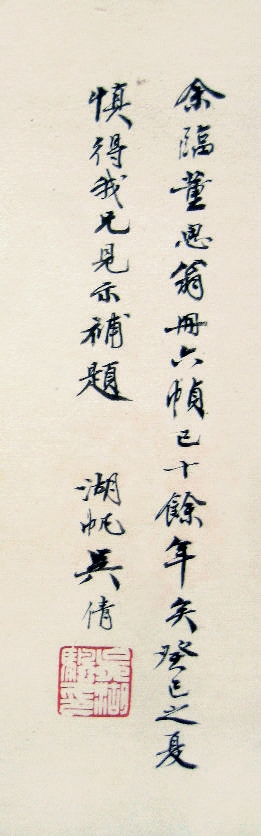 余臨董思翁冊六幀已十餘年矣癸巳之夏
慎得我兄見示補題
湖帆吳倩